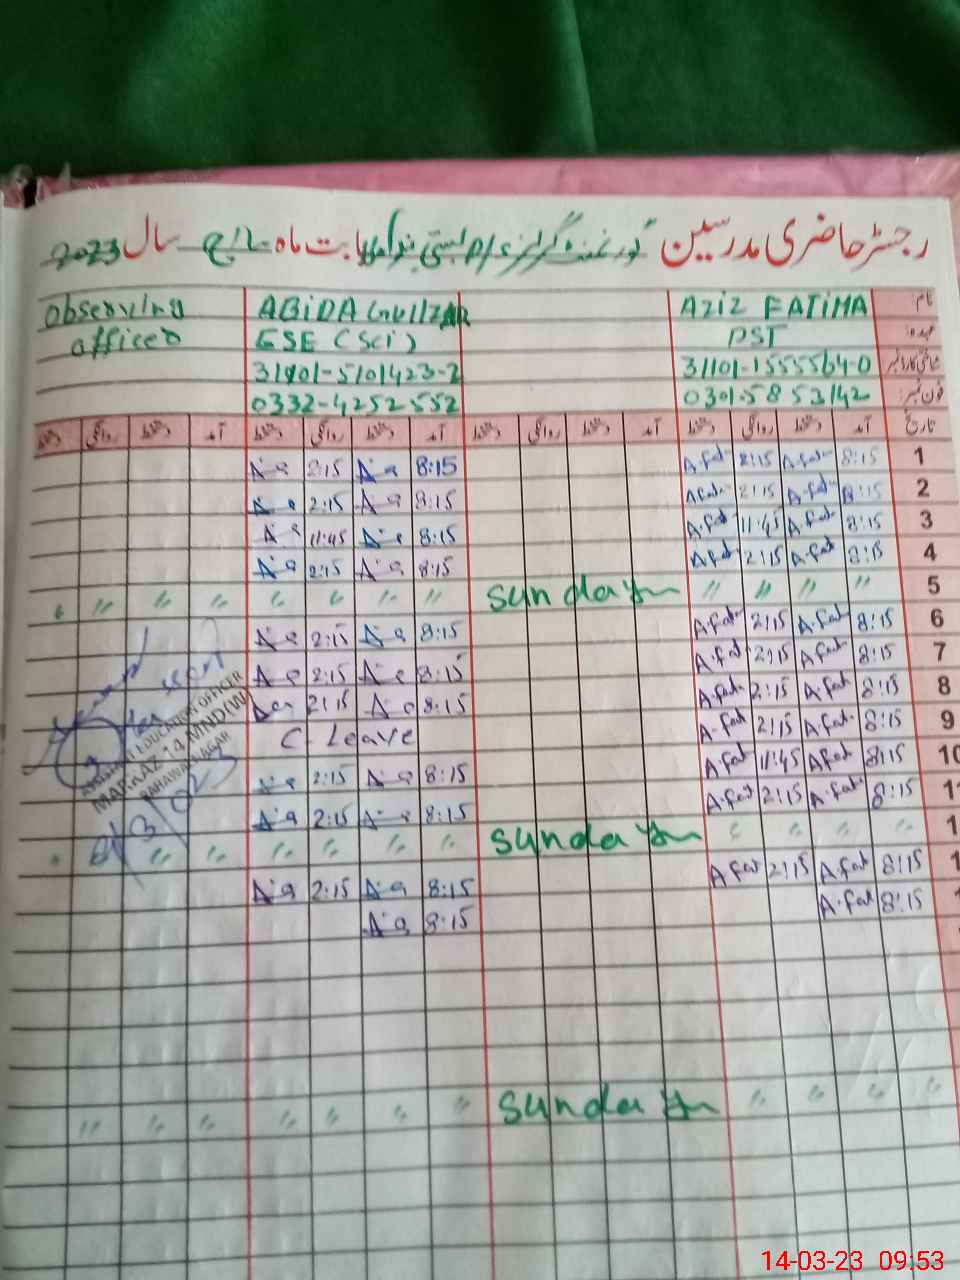 رجسٹر حاضری مدرسین گورنمنٹ گرلز بابت ماہ مارچ سال 2023
نام AZIZ FATIMA ABIDA GULLZAR observing
عہدہ PST ESE (Sci) officer
شناختی کارڈ نمبر 31101-1555564-0 31101-5101423-2
فون نمبر 0301-5853142 0332-4252552
تاریخ آمد دستخط روانگی دستخط آمد دستخط روانگی دستخط آمد دستخط روانگی دستخط آمد دستخط روانگی دستخط
1 8:15 A.fat 2:15 A.fat 8:15 2:15
2 8:15 A.fat 2:15 A.fat 8:15 2:15
3 8:15 A.fat 11:45 A.fat 8:15 11:45
4 8:15 A.fat 2:15 A.fat 8:15 2:15
5 〃 〃 〃 〃 sunday 〃 〃 〃 〃 〃 〃 〃
6 8:15 A.fat 2:15 A.fat 8:15 2:15
7 8:15 A.fat 2:15 A.fat 8:15 2:15
8 8:15 A.fat 2:15 A.fat 8:15 2:15
9 8:15 A.fat 2:15 A.fat C-Leave
10 8:15 A.fat 11:45 A.fat 8:15 2:15
8:15 A.fat 2:15 A.fat 8:15 2:15
〃 〃 〃 〃 sunday 〃 〃 〃 〃 〃 〃 〃
8:15 A.fat 2:15 A.fat 8:15 2:15
8:15 A.fat 8:15
〃 〃 〃 〃 sunday 〃 〃 〃 〃 〃 〃 〃
ASSISTANT EDUCATION OFFICER
MARKAZ 14 MND(W)
BAHAWALNAGAR
14-03-23 09:53